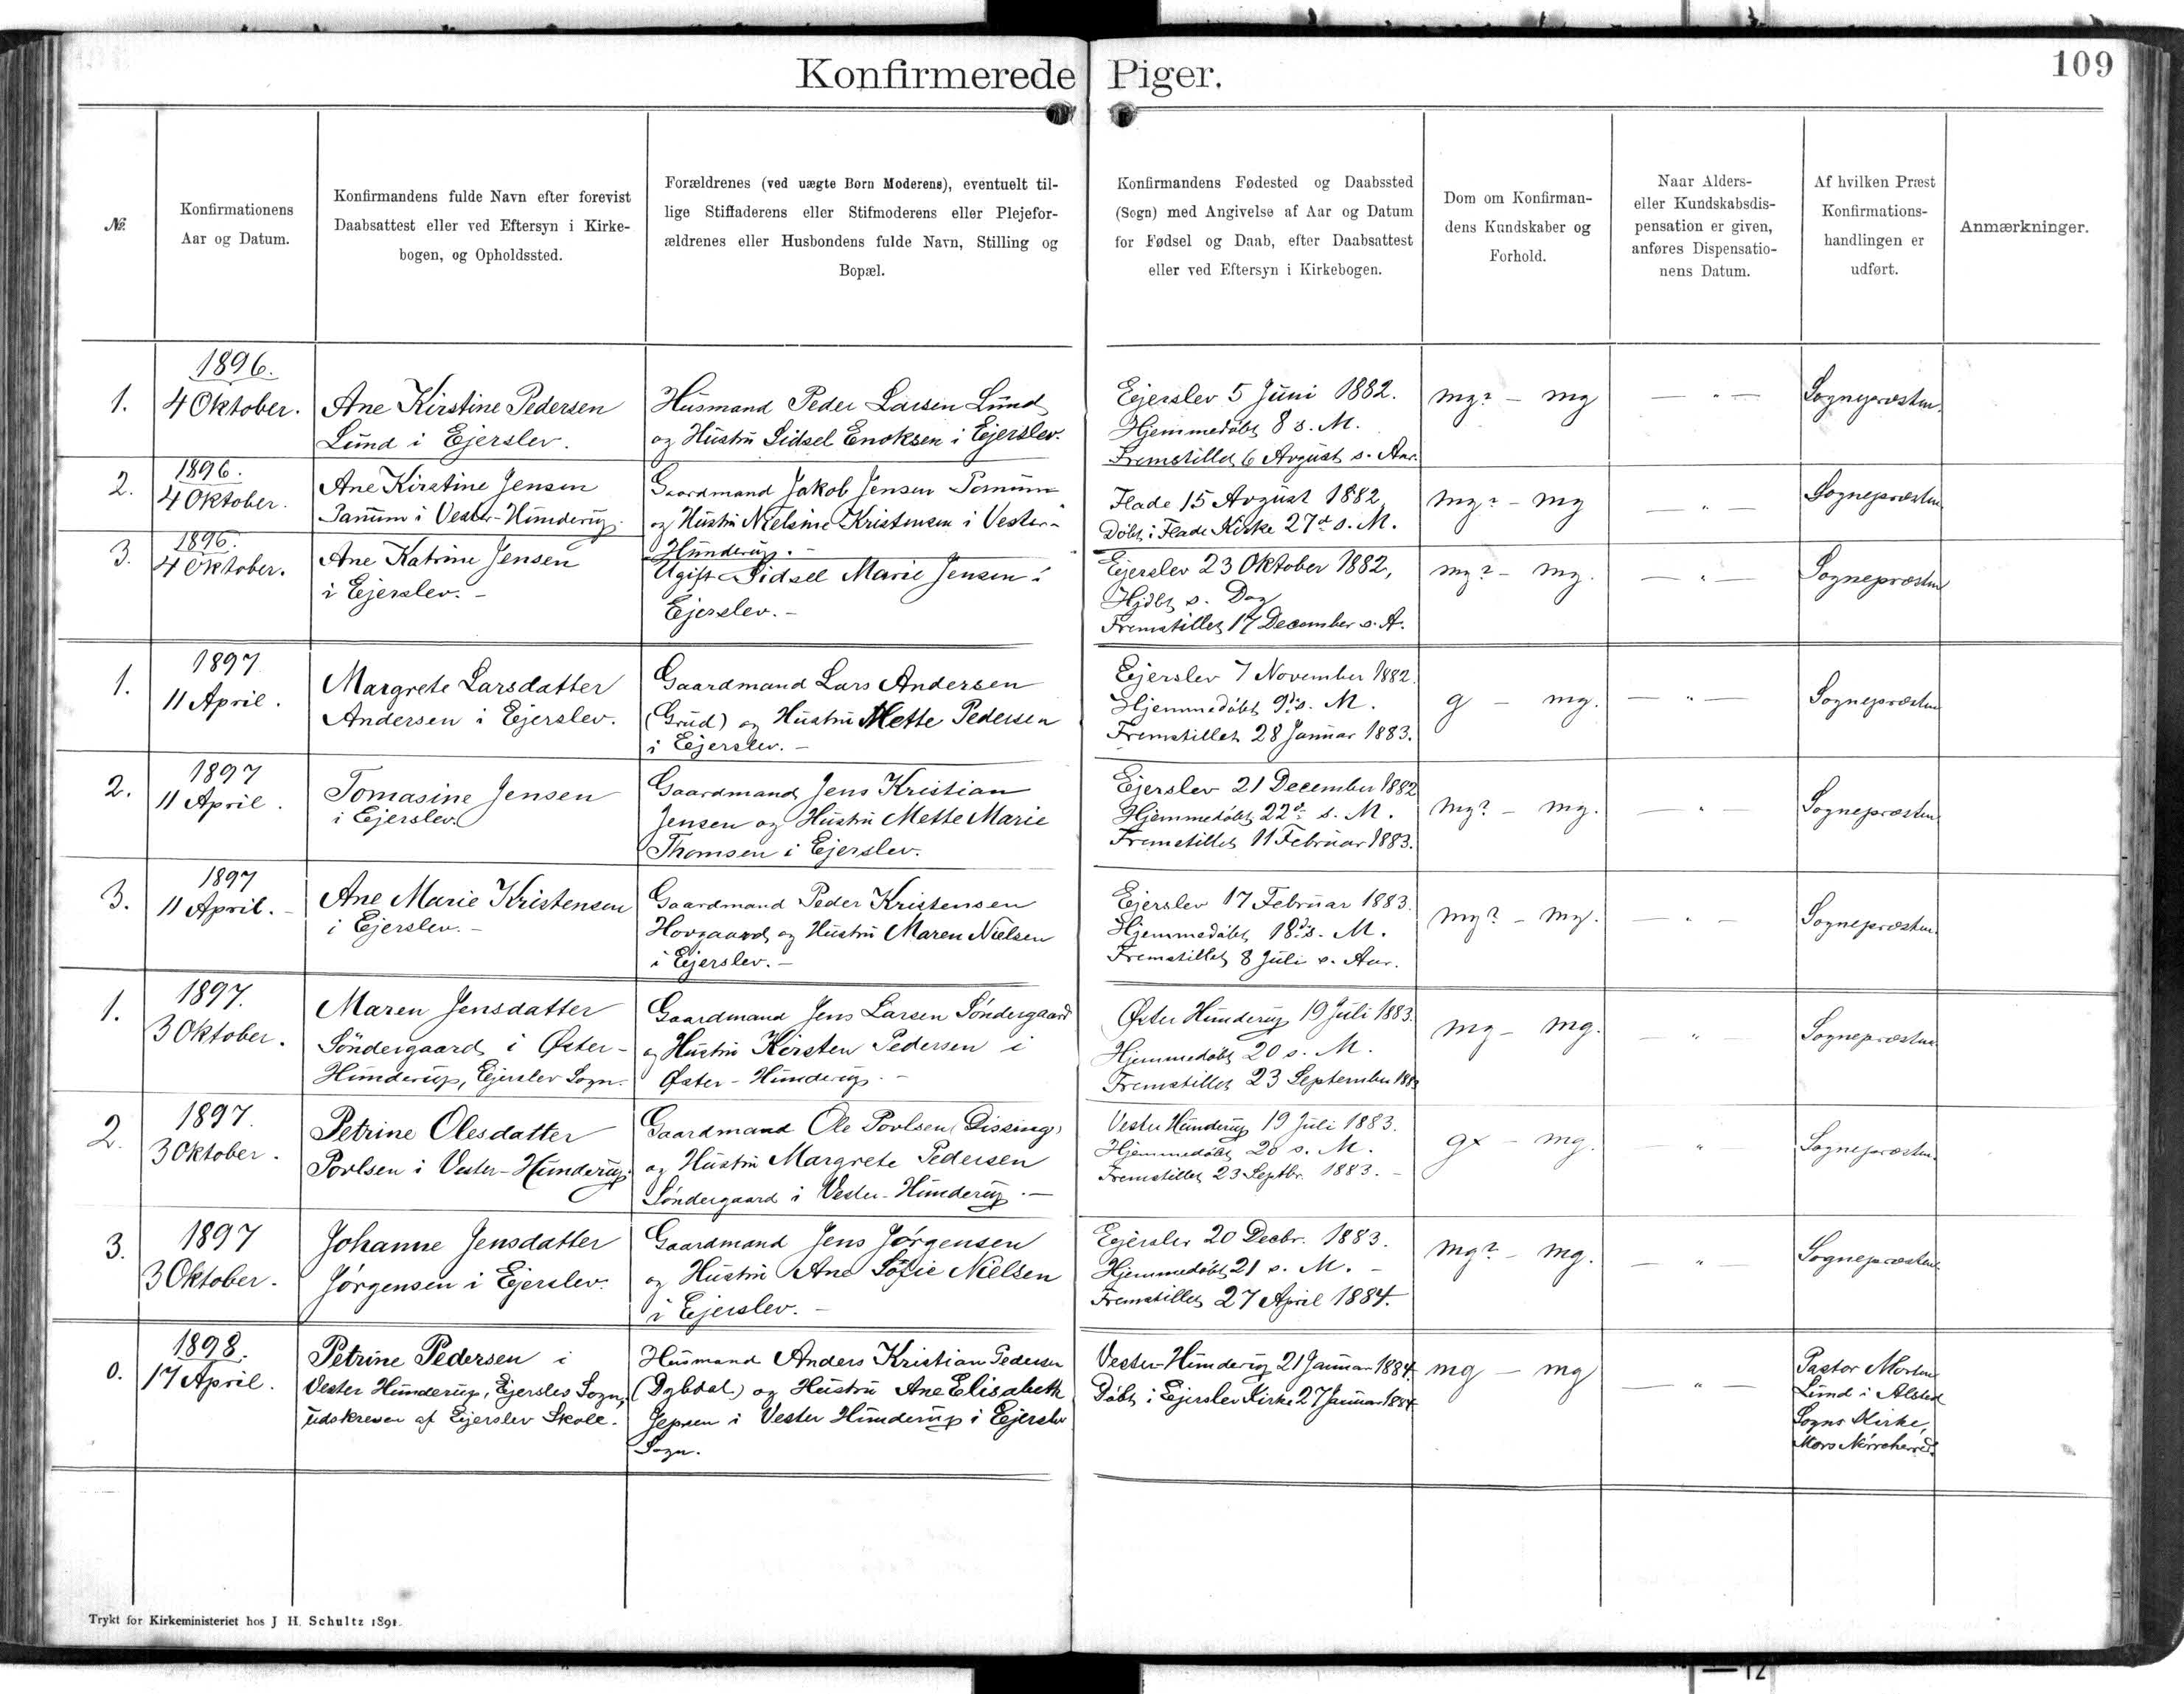 Konfirmerede Piger.
109
№
Konfirmationens
Aar og Datum.
Konfirmandens fulde Navn efter forevist
Daabsattest eller ved Eftersyn i Kirke-
bogen, og Opholdssted.
Forældrenes (ved uægte Børn Moderens), eventuelt til-
lige Stiffaderens eller Stifmoderens eller Plejefor-
ældrenes eller Husbondens fulde Navn, Stilling og
Bopæl.
Konfirmandens Fødested og Daabssted
(Sogn) med Angivelse af Aar og Datum
for Fødsel og Daab, efter Daabsattest
eller ved Eftersyn i Kirkebogen.
Dom om Konfirman-
dens Kundskaber og
Forhold.
Naar Alders-
eller Kundskabsdis-
pensation er given,
anføres Dispensatio-
nens Datum.
Af hvilken Præst
Konfirmations-
handlingen er
udført.
Anmærkninger.
1.
1896.
4 Oktober.
Ane Kirstine Pedersen
Lund i Ejerslev.
Husmand Peder Larsen Lund
og Hustru Sidsel Enoksen i Ejerslev.
Ejerslev 5 Juni 1882.
Hjemmedøbt 8 s. M.
Fremstillet 6 Avgust s. Aar.
mg? – mg
— " —
Sognepræsten.
2.
1896.
4 Oktober.
Ane Kirstine Jensen
Panum i Vester-Hunderup.
Gaardmand Jakob Jensen Panum
og Hustru Nielsine Kristensen i Vester-
Hunderup. –
Flade 15 Avgust 1882,
Døbt i Flade Kirke 27d s. M.
mg? – mg
— " —
Sognepræsten
3.
1896.
4 Oktober.
Ane Katrine Jensen
i Ejerslev. –
Ugift Sidsel Marie Jensen i
Ejerslev. –
Ejerslev 23 Oktober 1882,
Hjdbt s. Dag
Fremstillet 17 December s. A.
mg? – mg.
— " —
Sognepræsten
1.
1897
11 April.
Margrete Larsdatter
Andersen i Ejerslev.
Gaardmand Lars Andersen
(Grud) og Hustru Mette Pedersen
i Ejerslev. –
Ejerslev 7 November 1882.
Hjemmedøbt 9d s. M.
Fremstillet 28 Januar 1883.
g – mg.
— " —
Sognepræsten
2.
1897
11 April.
Tomasine Jensen
i Ejerslev.
Gaardmand Jens Kristian
Jensen og Hustru Mette Marie
Thomsen i Ejerslev.
Ejerslev 21 December 1882
Hjemmedøbt 22d s. M.
Fremstillet 11 Februar 1883.
mg? – mg.
— " —
Sognepræsten
3.
1897
11 April. –
Ane Marie Kristensen
i Ejerslev. –
Gaardmand Peder Kristensen
Hovgaard og Hustru Maren Nielsen
i Ejerslev. –
Ejerslev 17 Februar 1883.
Hjemmedøbt 18d s. M.
Fremstillet 8 Juli s. Aar.
mg? – mg.
— " —
Sognepræsten.
1.
1897.
3 Oktober.
Maren Jensdatter
Søndergaard i Øster-
Hunderup, Ejerslev Sogn.
Gaardmand Jens Larsen Søndergaard
og Hustru Kirsten Pedersen i
Øster-Hunderup. –
Øster Hunderup 19 Juli 1883.
Hjemmedøbt 20 s. M.
Fremstillet 23 September 1883
mg – mg.
— " —
Sognepræsten
2.
1897.
3 Oktober.
Petrine Olesdatter
Povlsen i Vester-Hunderup.
Gaardmand Ole Povlsen (Dissing)
og Hustru Margrete Pedersen
Søndergaard i Vester-Hunderup. –
Vester Hunderup 19 Juli 1883.
Hjemmedøbt 20 s. M.
Fremstillet 23 Septbr. 1883. –
gx – mg.
— " —
Sognepræsten.
3.
1897
3 Oktober.
Johanne Jensdatter
Jørgensen i Ejerslev.
Gaardmand Jens Jørgensen
og Hustru Ane Sofie Nielsen
i Ejerslev. –
Ejerslev 20 Decbr. 1883.
Hjemmedøbt 21 s. M. –
Fremstillet 27 April 1884.
mg? – mg.
— " —
Sognepræsten.
0.
1898.
17 April.
Petrine Pedersen i
Vester Hunderup, Ejerslev Sogn,
udskreven af Ejerslev Skole.
Husmand Anders Kristian Pedersen
(Dybdal) og Hustru Ane Elisabeth
Jepsen i Vester Hunderup i Ejerslev
Sogn.
Vester-Hunderup 21 Januar 1884
Døbt i Ejerslev Kirke 27 Januar 1884
mg – mg
— " —
Pastor Morten
Lund i Alsted
Sogns Kirke,
Mors Nørreherred.
Trykt for Kirkeministeriet hos J H. Schultz 1891.